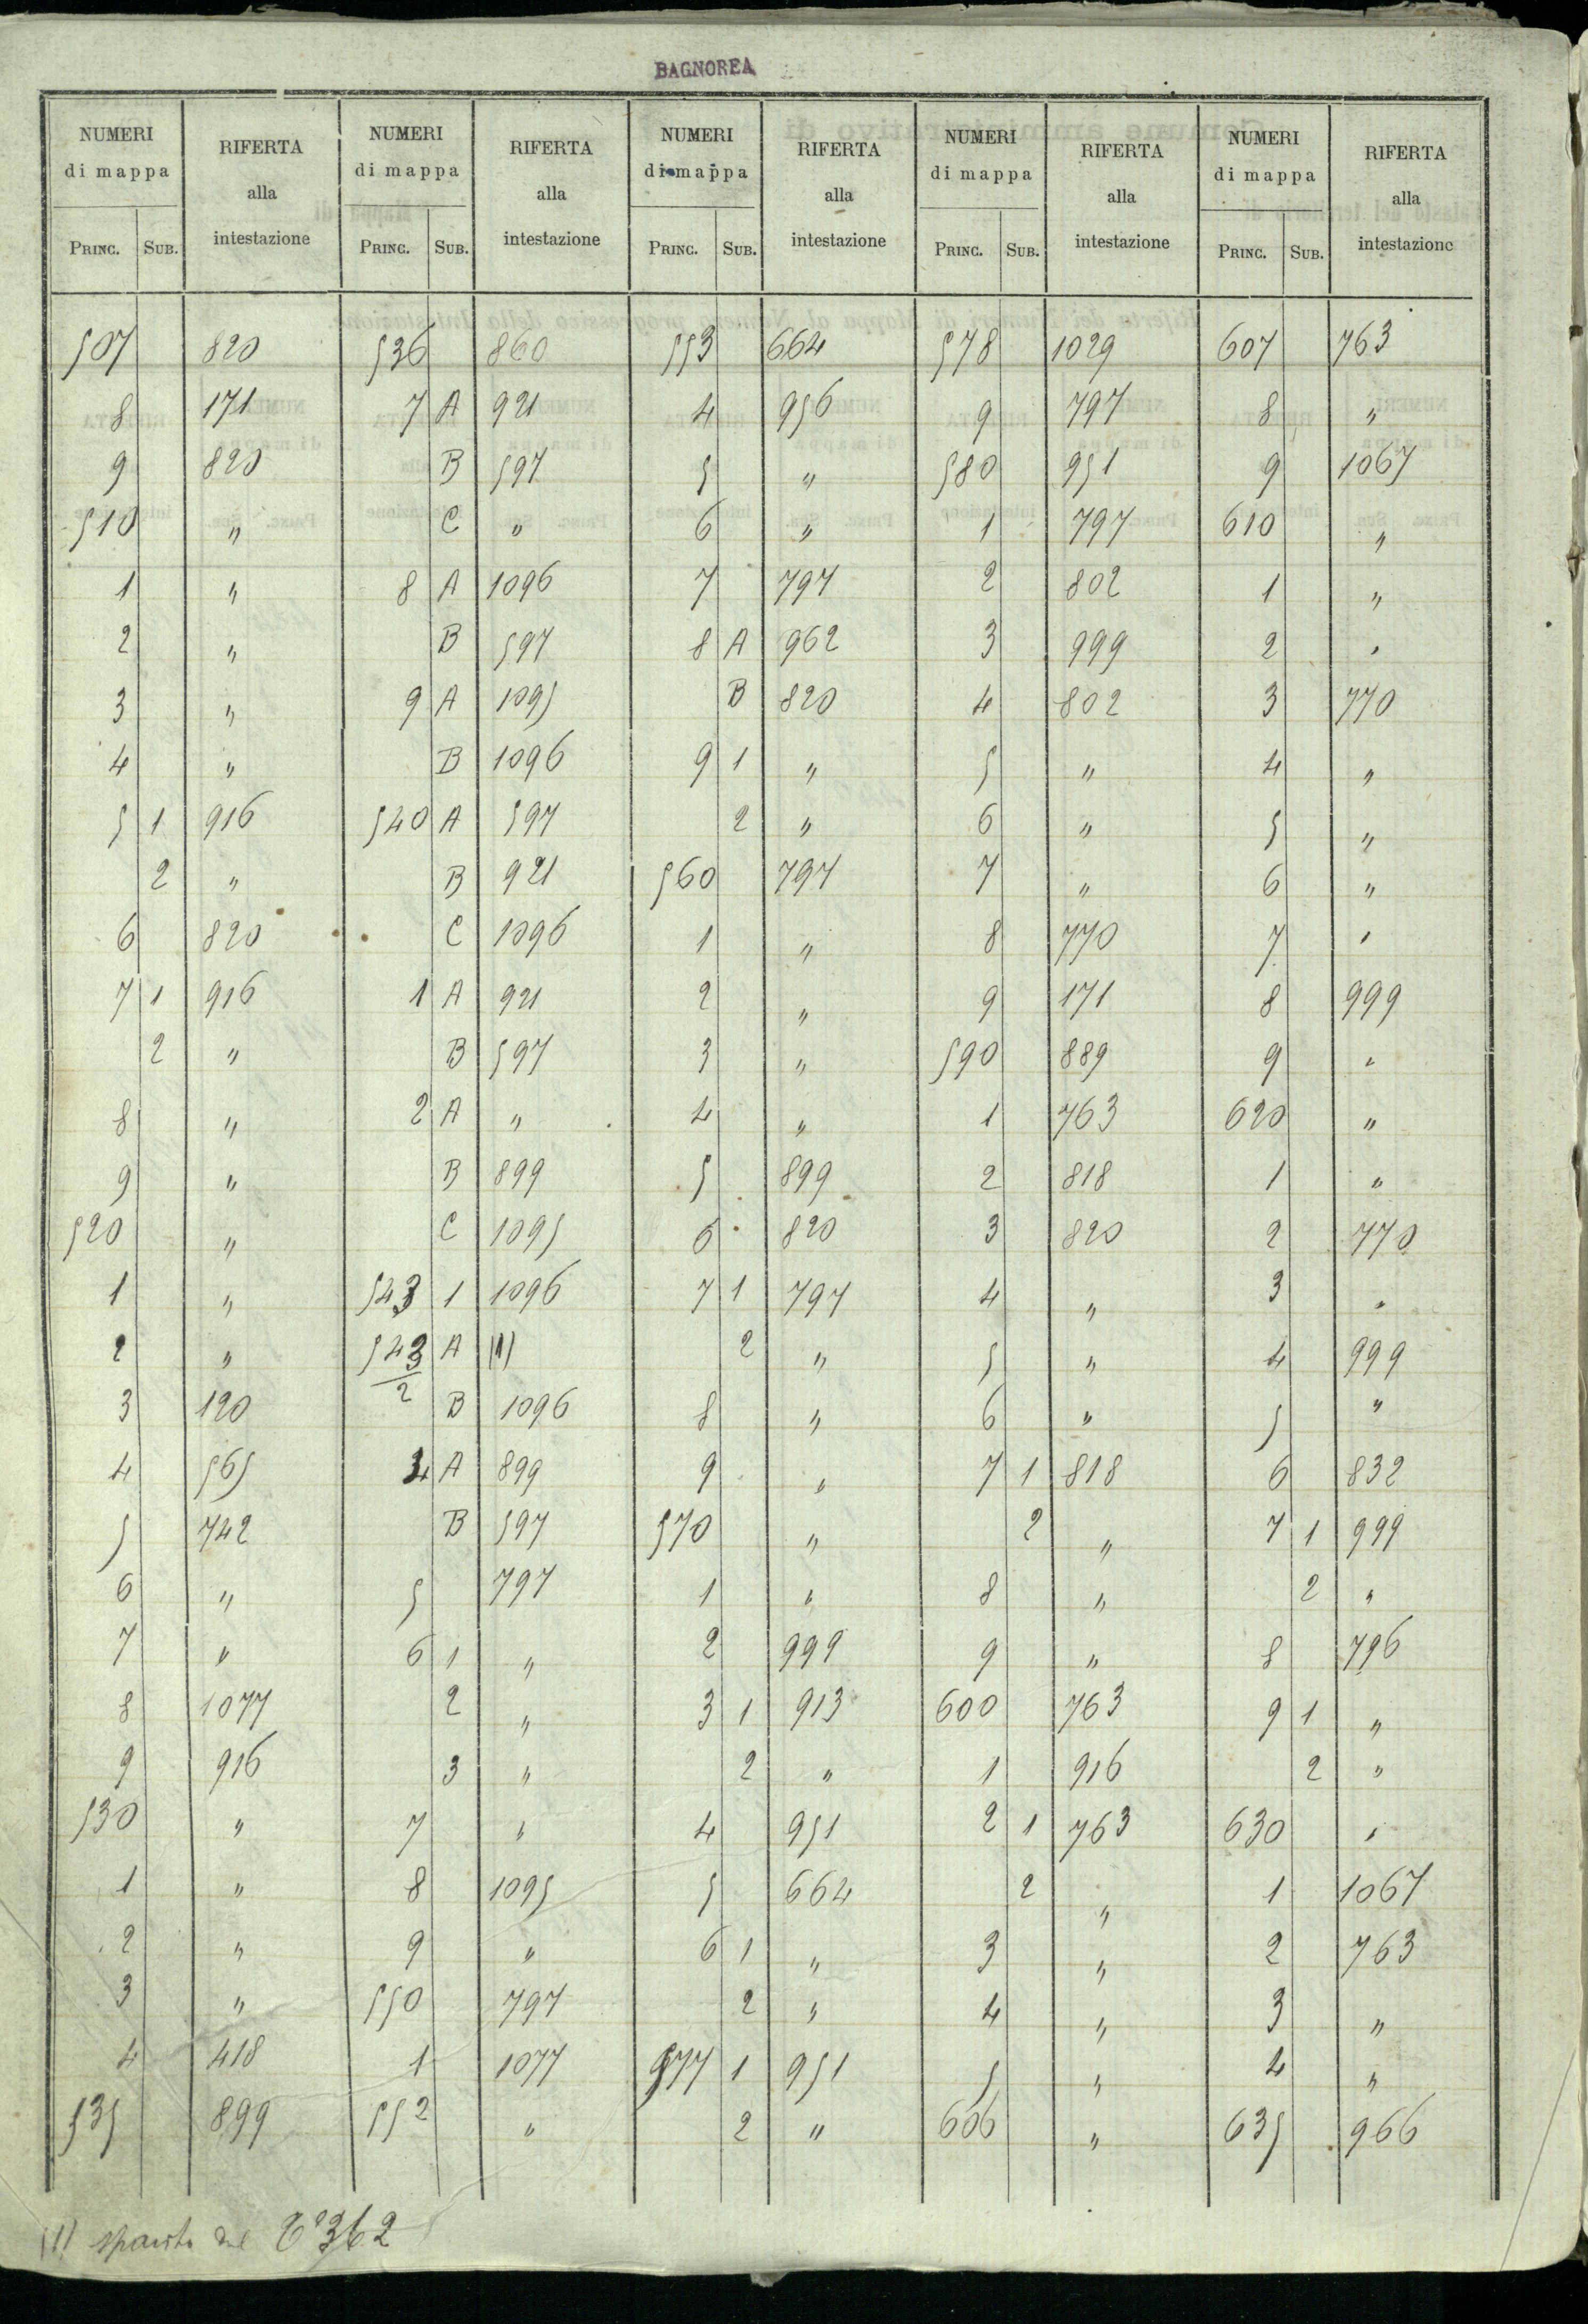 BAGNOREA
NUMERI di mappa | RIFERTA alla intestazione | NUMERI di mappa | RIFERTA alla intestazione | NUMERI di mappa | RIFERTA alla intestazione | NUMERI di mappa | RIFERTA alla intestazione | NUMERI di mappa | RIFERTA alla intestazione
PRINC. | SUB. | | PRINC. | SUB. | | PRINC. | SUB. | | PRINC. | SUB. | | PRINC. | SUB. |
507 | | 820 | 536 | | 860 | 553 | | 664 | 578 | | 1029 | 607 | | 763
8 | | 171 | 7 | A | 921 | 4 | | 956 | 9 | | 797 | 8 | | "
9 | | 820 | | B | 597 | 5 | | " | 580 | | 951 | 9 | | 1067
510 | | " | | C | " | 6 | | " | 1 | | 797 | 610 | | "
1 | | " | 8 | A | 1096 | 7 | | 797 | 2 | | 802 | 1 | | "
2 | | " | | B | 597 | 8 | A | 962 | 3 | | 999 | 2 | | "
3 | | " | 9 | A | 1095 | | B | 820 | 4 | | 802 | 3 | | 770
4 | | " | | B | 1096 | 9 | 1 | " | 5 | | " | 4 | | "
5 | 1 | 916 | 540 | A | 597 | | 2 | " | 6 | | " | 5 | | "
| 2 | " | | B | 921 | 560 | | 797 | 7 | | " | 6 | | "
6 | | 820 | | C | 1096 | 1 | | " | 8 | | 770 | 7 | | "
7 | 1 | 916 | 1 | A | 921 | 2 | | " | 9 | | 171 | 8 | | 999
| 2 | " | | B | 597 | 3 | | " | 590 | | 889 | 9 | | "
8 | | " | 2 | A | " | 4 | | " | 1 | | 763 | 620 | | "
9 | | " | | B | 899 | 5 | | 899 | 2 | | 818 | 1 | | "
520 | | " | | C | 1095 | 6 | | 820 | 3 | | 820 | 2 | | 770
1 | | " | 543 | 1 | 1096 | 7 | 1 | 797 | 4 | | " | 3 | | "
2 | | " | 543/2 | A | (1) | | 2 | " | 5 | | " | 4 | | 999
3 | | 120 | | B | 1096 | 8 | | " | 6 | | " | 5 | | "
4 | | 565 | 4 | A | 899 | 9 | | " | 7 | 1 | 818 | 6 | | 832
5 | | 742 | | B | 597 | 570 | | " | | 2 | " | 7 | 1 | 999
6 | | " | 5 | | 797 | 1 | | " | 8 | | " | | 2 | "
7 | | " | 6 | 1 | " | 2 | | 999 | 9 | | " | 8 | | 796
8 | | 1077 | | 2 | " | 3 | 1 | 913 | 600 | | 763 | 9 | 1 | "
9 | | 916 | | 3 | " | | 2 | " | 1 | | 916 | | 2 | "
530 | | " | 7 | | " | 4 | | 951 | 2 | 1 | 763 | 630 | | "
1 | | " | 8 | | 1095 | 5 | | 664 | | 2 | " | 1 | | 1067
2 | | " | 9 | | " | 6 | 1 | " | 3 | | " | 2 | | 763
3 | | " | 550 | | 797 | | 2 | " | 4 | | " | 3 | | "
4 | | 418 | 1 | | 1077 | 577 | 1 | 951 | 5 | | " | 4 | | "
535 | | 899 | 552 | | " | | 2 | " | 606 | | " | 635 | | 966
(1) 362